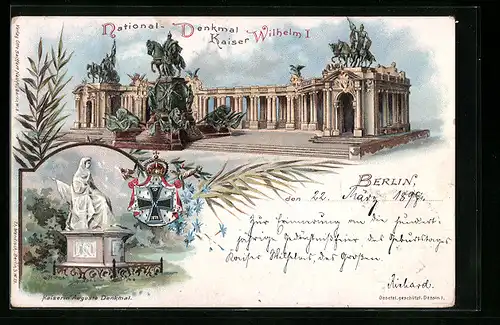 National-Denkmal
Kaiser Wilhelm I
BERLIN,
den 22. März 1897.
Zur Erinnerung an die hundert-
jährige Gedächtnißfeier des Geburtstages
Kaiser Wilhelms des Großen.
Richard.
Kaiserin Augusta Denkmal.
Gesetzl. geschützt.